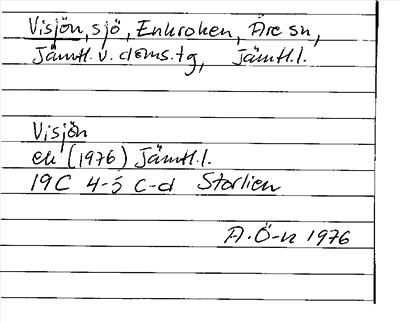 Visjön, sjö, Enkroken, Åre sn,
Jämtl. v. doms.tg, Jämtl.l.
Visjön
ek (1976) Jämtl.l.
19C 4-5 c-d Storlien
A.Ö-n 1976